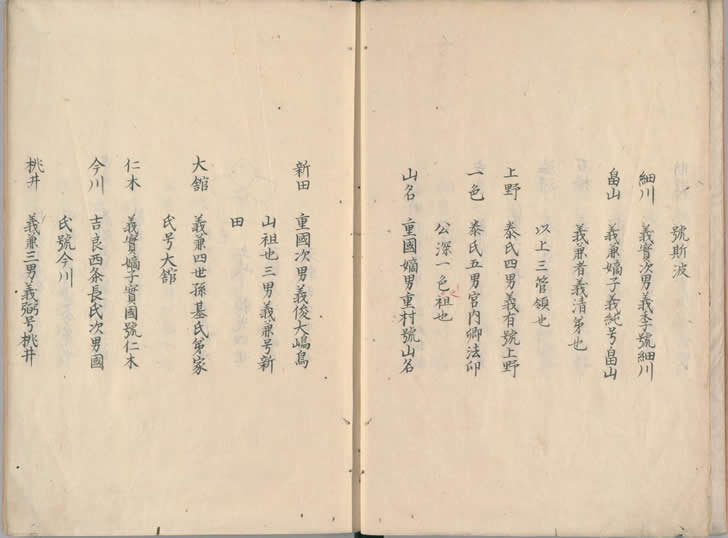 號斯波
細川 義實次男義季號細川
畠山 義兼嫡子義純号畠山
義兼者義清弟也
以上三管領也
上野 泰氏四男義有號上野
一色 泰氏五男宮内卿法印
公深一色祖也
山名 重國嫡男重村號山名
新田 重國次男義俊大嶋鳥
山祖也三男義兼号新
田
大舘 義兼四世孫基氏弟家
氏号大舘
仁木 義實嫡子實國號仁木
今川 吉良西条長氏次男國
氏號今川
桃井 義兼三男義弼号桃井